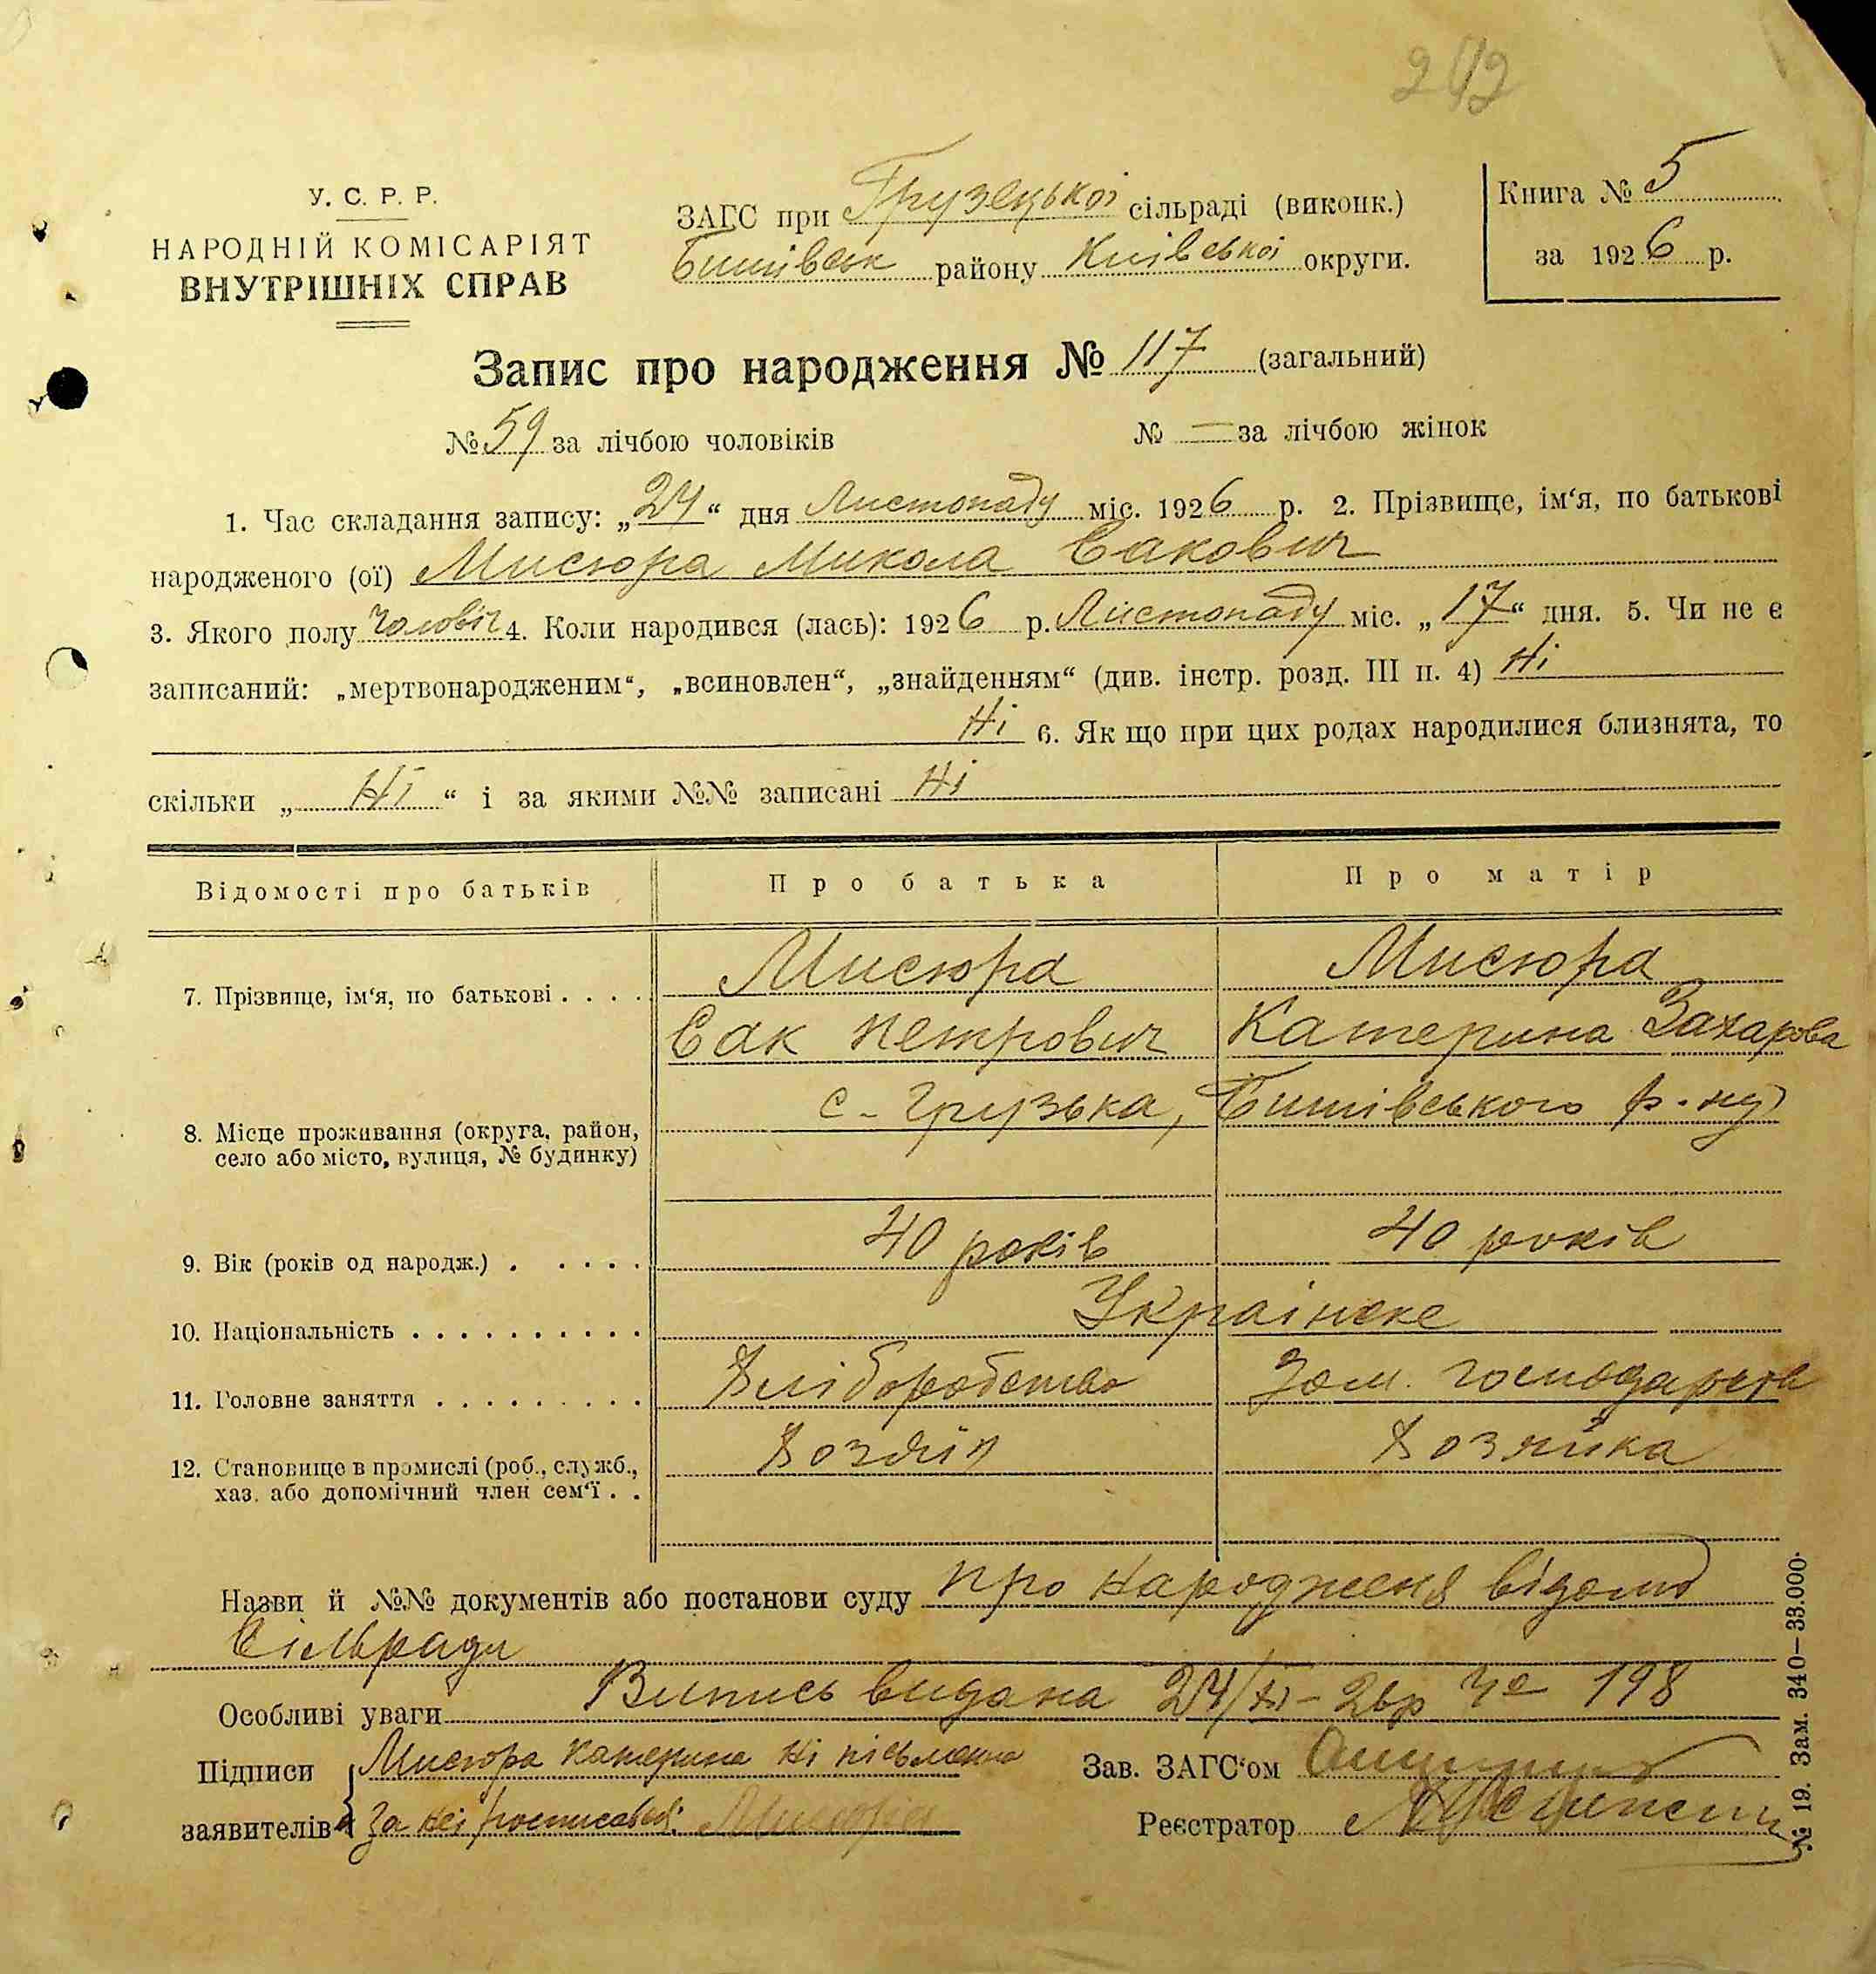 242
У. С. Р. Р.
НАРОДНІЙ КОМІСАРІЯТ
ВНУТРІШНІХ СПРАВ
ЗАГС при Грузецької сільраді (виконк.)
Бишівськ району Київської округи.
Книга № 5
за 1926 р.
Запис про народження № 117 (загальний)
№ 59 за лічбою чоловіків № — за лічбою жінок
1. Час складання запису: „24“ дня Листопаду міс. 1926 р. 2. Прізвище, ім‘я, по батькові
народженого (ої) Мисюра Микола Сакович
3. Якого полу чоловіч 4. Коли народився (лась): 1926 р. Листопаду міс. „17“ дня. 5. Чи не є
записаний: „мертвонародженим“, „всиновлен“, „знайденням“ (див. інстр. розд. III п. 4) Ні
Ні 6. Як що при цих родах народилися близнята, то
скільки „ Ні “ і за якими №№ записані Ні
Відомості про батьків Про батька Про матір
7. Прізвище, ім‘я, по батькові . . . . Мисюра Мисюра
Сак Петрович Катерина Захарова
8. Місце проживання (округа, район, с-Грузька, Бишівського р-ну
село або місто, вулиця, № будинку)
9. Вік (років од народж.) . . . . . 40 років 40 років
10. Національність . . . . . . . . . . Украінске
11. Головне заняття . . . . . . . . . Хліборобство Дом. господарств
12. Становище в промислі (роб., служб., Хозяїн Хозяйка
хаз. або допомічний член сем‘ї . .
Назви й №№ документів або постанови суду про народженя відомо
Сільради
Особливі уваги Випись видана 24/XI-26р № 198
Підписи Мисюра Катерина ні письменна
заявителів За неі росписавсь: Мисюра
Зав. ЗАГС‘ом
Реєстратор
№ 19. Зам. 340—33.000.